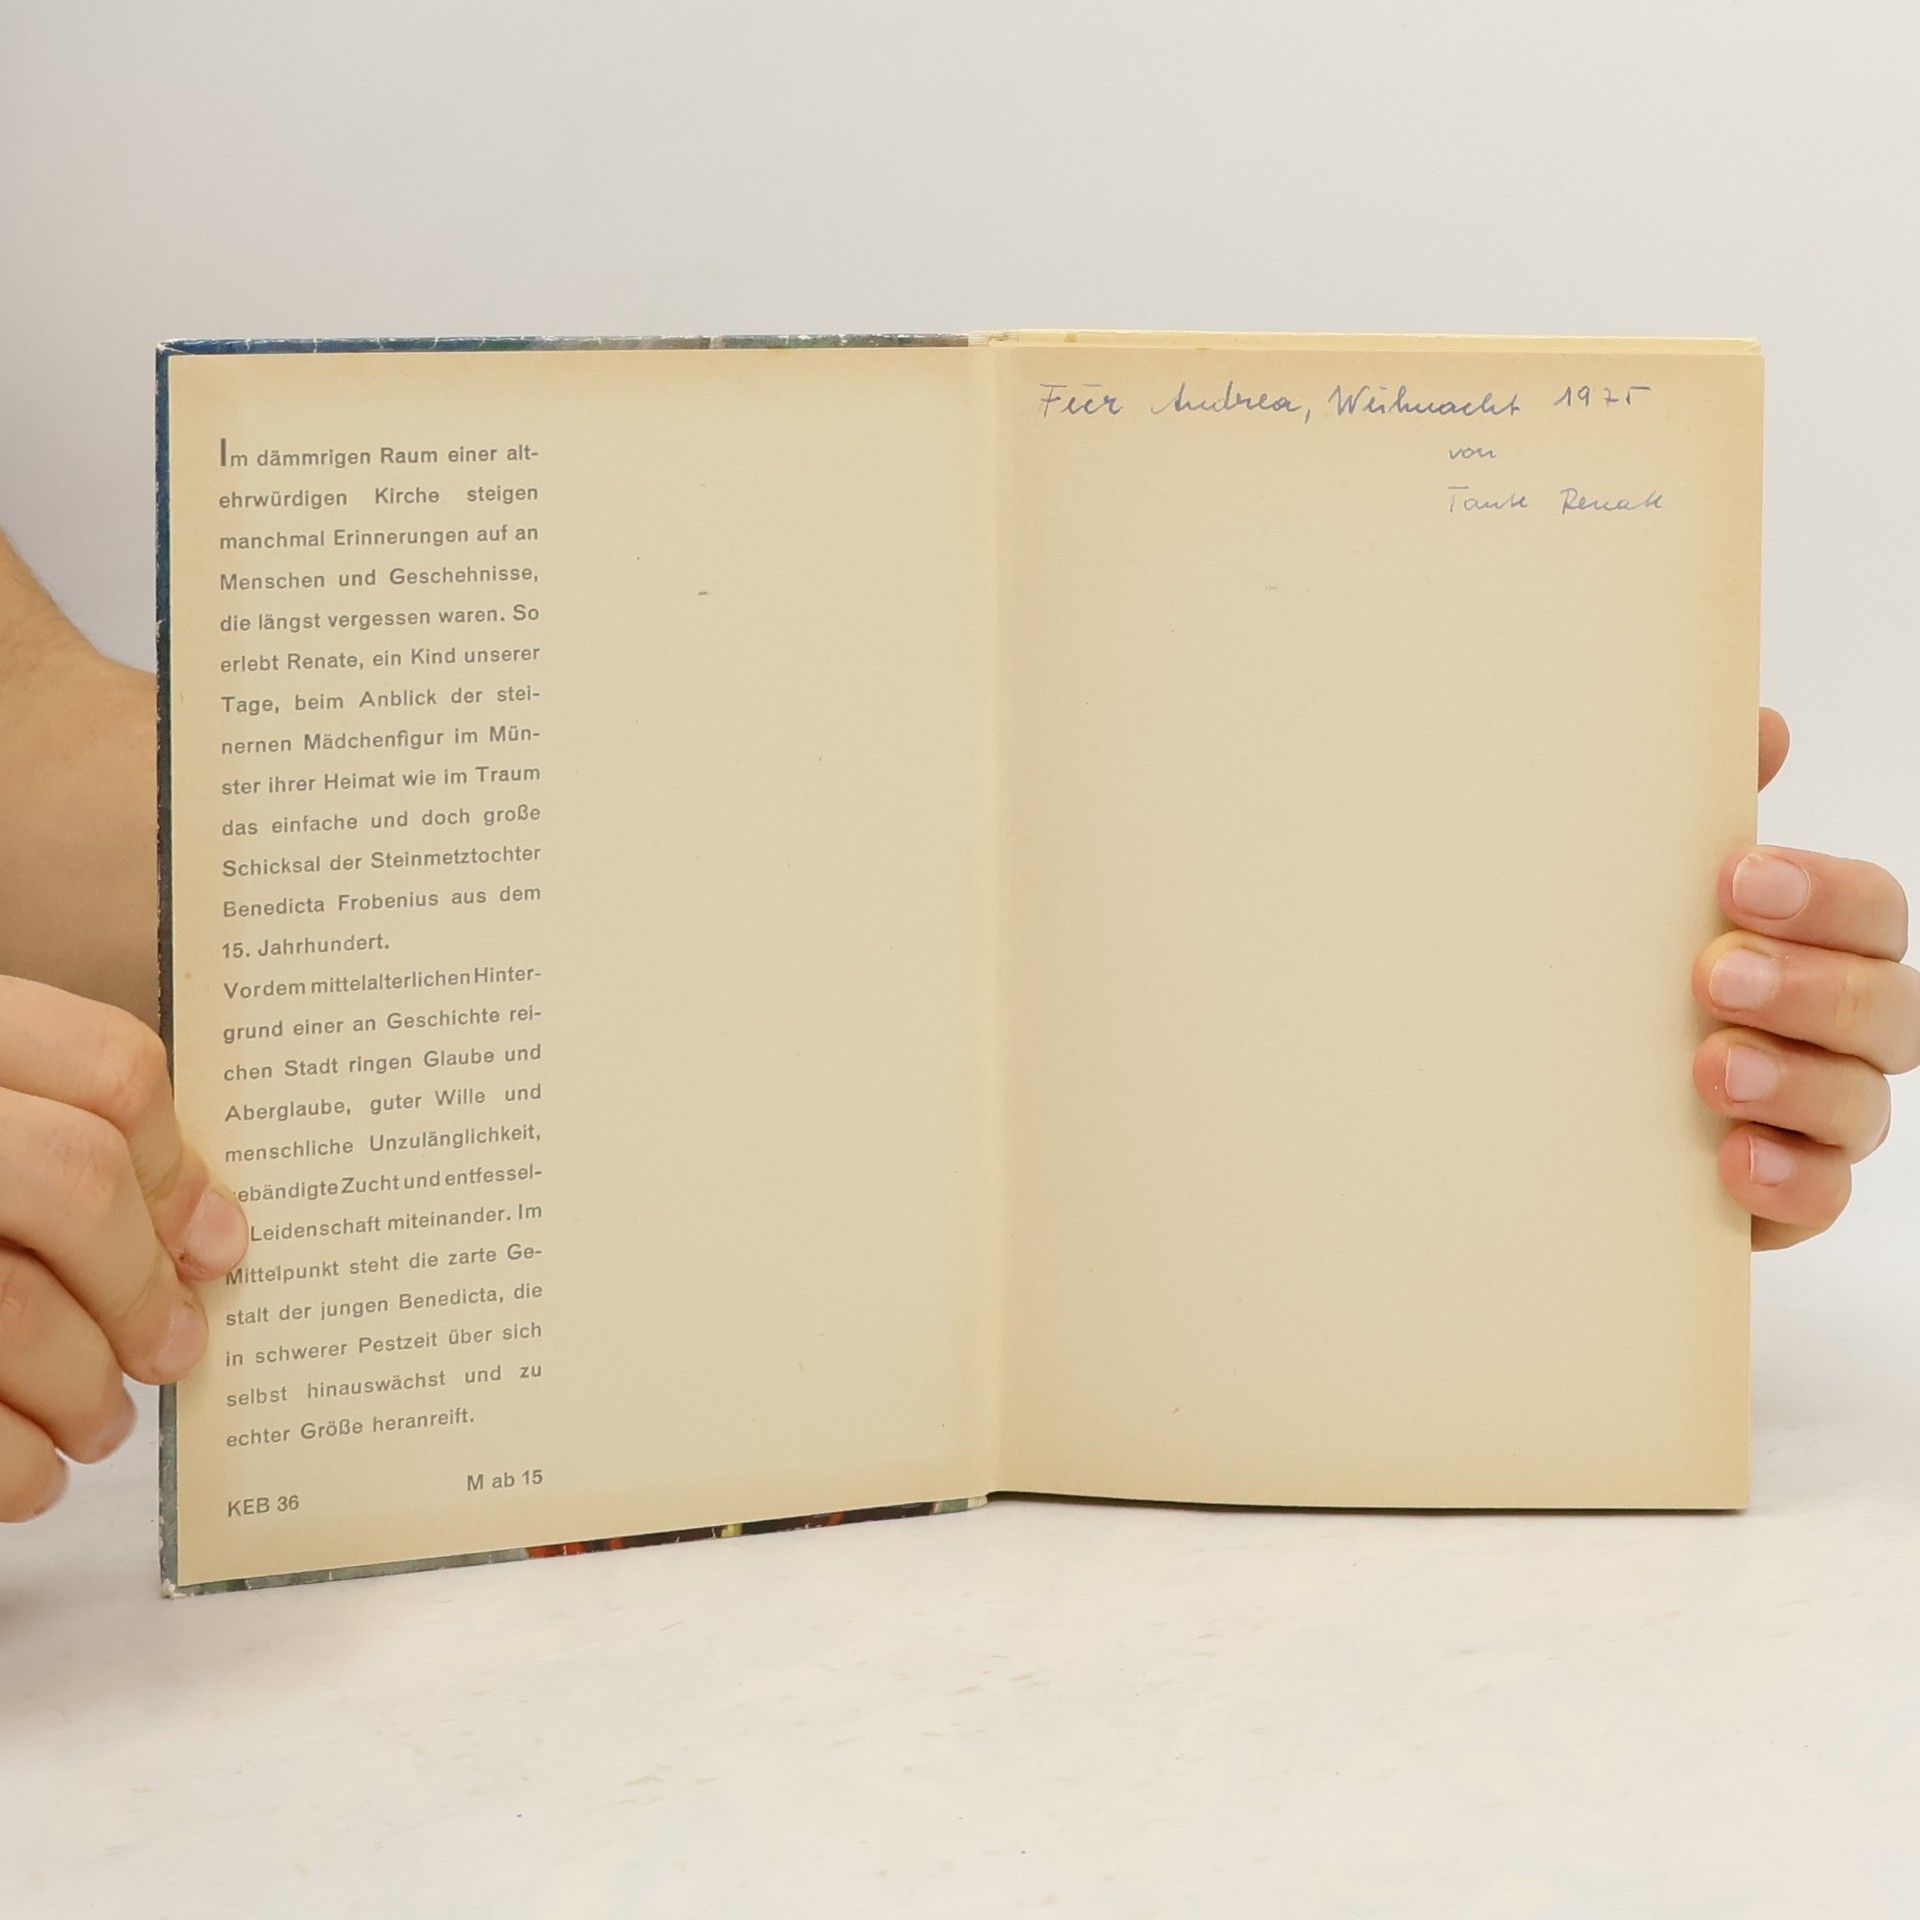 Im dämmrigen Raum einer alt-
ehrwürdigen Kirche steigen
manchmal Erinnerungen auf an
Menschen und Geschehnisse,
die längst vergessen waren. So
erlebt Renate, ein Kind unserer
Tage, beim Anblick der stei-
nernen Mädchenfigur im Mün-
ster ihrer Heimat wie im Traum
das einfache und doch große
Schicksal der Steinmetztochter
Benedicta Frobenius aus dem
15. Jahrhundert.
Vor dem mittelalterlichen Hinter-
grund einer an Geschichte rei-
chen Stadt ringen Glaube und
Aberglaube, guter Wille und
menschliche Unzulänglichkeit,
ebändigte Zucht und entfessel-
Leidenschaft miteinander. Im
Mittelpunkt steht die zarte Ge-
stalt der jungen Benedicta, die
in schwerer Pestzeit über sich
selbst hinauswächst und zu
echter Größe heranreift.
M ab 15
KEB 36
Für Andrea, Weihnacht 1975
von
Tante Renate